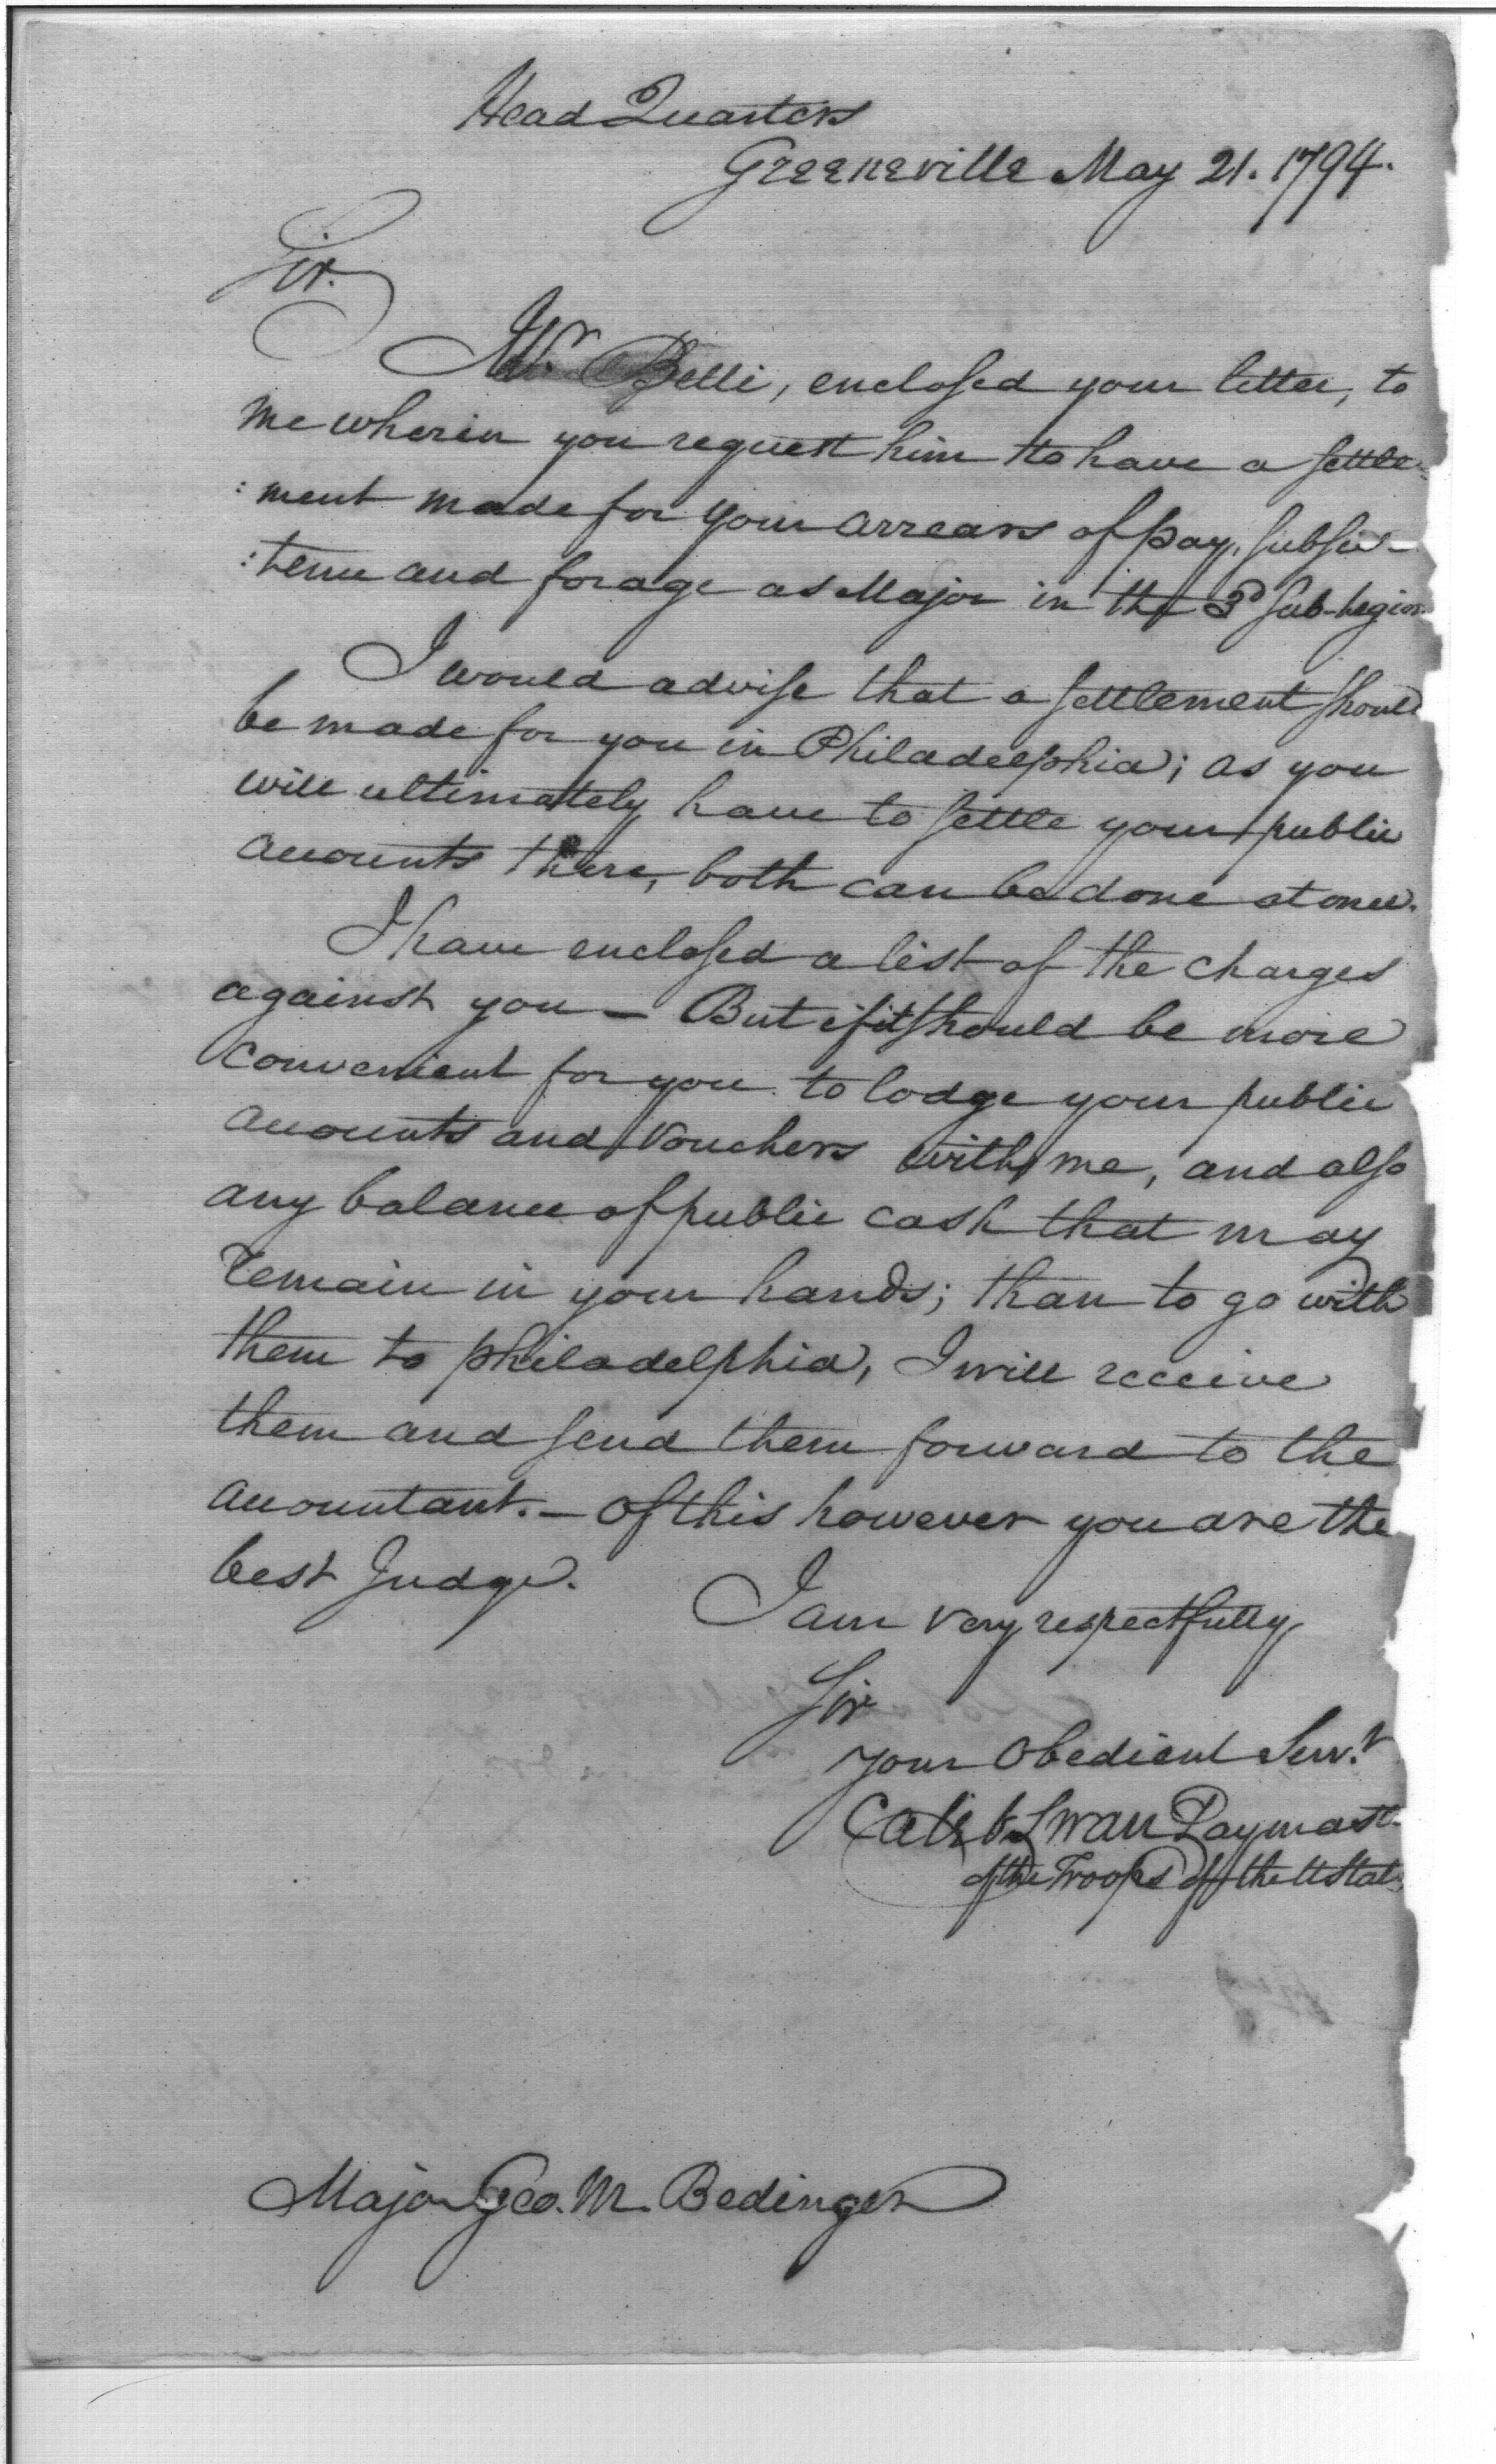 Head Quarters
Greeneville May 21. 1794.
Sir.
Mr. Belli, enclosed your letter, to
me wherein you request him to have a settle-
:ment made for your arrears of pay, subsis-
:tence and forage as Major in the 3d Sub-legion
I would advise that a settlement should
be made for you in Philadelphia; as you
will ultimately have to settle your public
accounts there, both can be done at once.
I have enclosed a list of the charges
against you — But if it should be more
convenient for you to lodge your public
accounts and vouchers with me, and also
any balance of public cash that may
remain in your hands; than to go with
them to philadelphia, I will receive
them and send them forward to the
accountant. — Of this however you are the
best Judge.
I am very respectfully
Sir
your Obedient Servt
Caleb Swan Paymast.
of the Troops of the U States
Major Geo. M. Bedinger